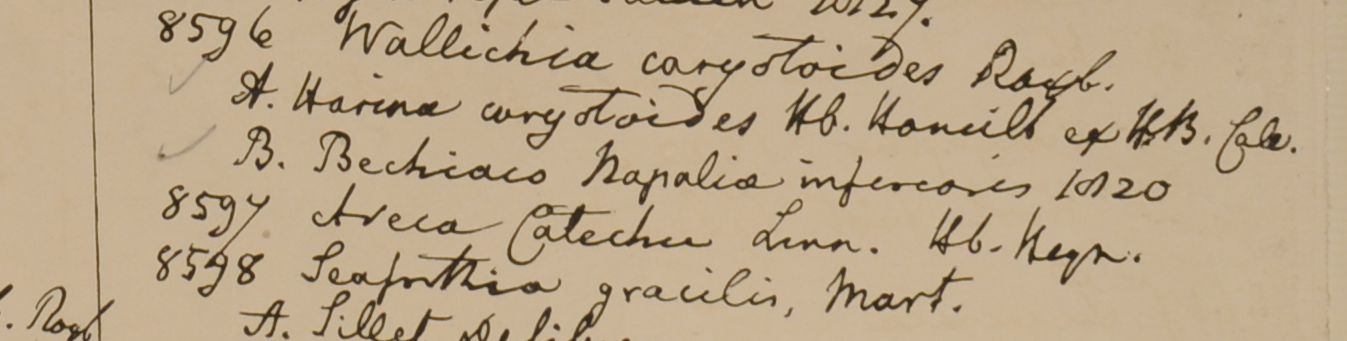 1827.
8596 Wallichia caryotoides Roxb.
A. Harina caryotoides Hb. Hamilt ex H.B. Calc.
B. Bechiaco Napaliæ inferioris 1820
8597 Areca Catechu Linn. Hb. Heyn.
8598 Seaforthia gracilis, Mart.
. Roxb
A. Sillet